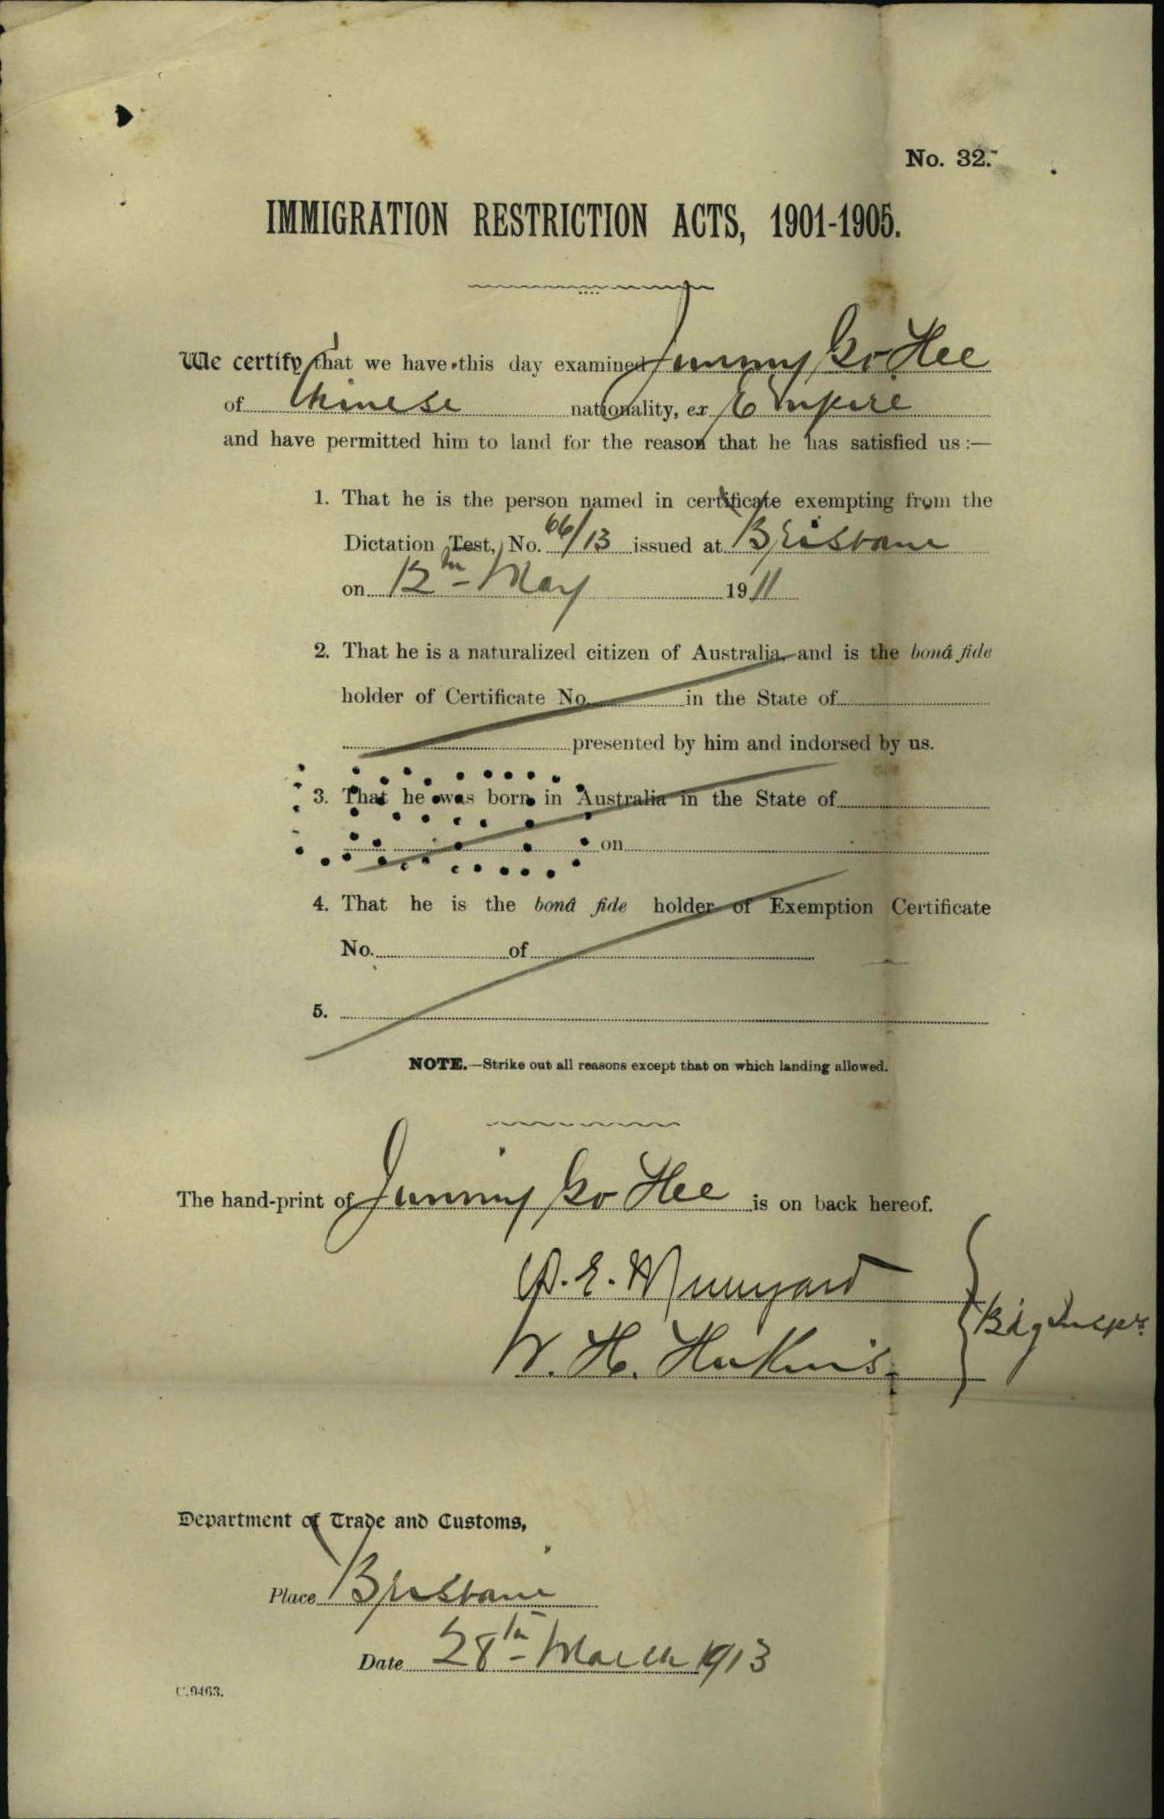 No. 32.
IMMIGRATION RESTRICTION ACTS, 1901-1905.
We certify that we have this day examined Jimmy Go Hee
of Chinese nationality, ex Empire
and have permitted him to land for the reason that he has satisfied us :—
1. That he is the person named in certificate exempting from the
Dictation Test, No. 66/13 issued at Brisbane
on 12th May 1911
2. That he is a naturalized citizen of Australia, and is the bonâ fide
holder of Certificate No. in the State of
presented by him and indorsed by us.
3. That he was born in Australia in the State of
on
4. That he is the bonâ fide holder of Exemption Certificate
No. of
5.
NOTE.—Strike out all reasons except that on which landing allowed.
The hand-print of Jimmy Go Hee is on back hereof.
W. E. Munyard
W. H. Hukins
Bdg Insprs.
Department of Trade and Customs,
Place Brisbane
Date 28th March 1913
C.9463.